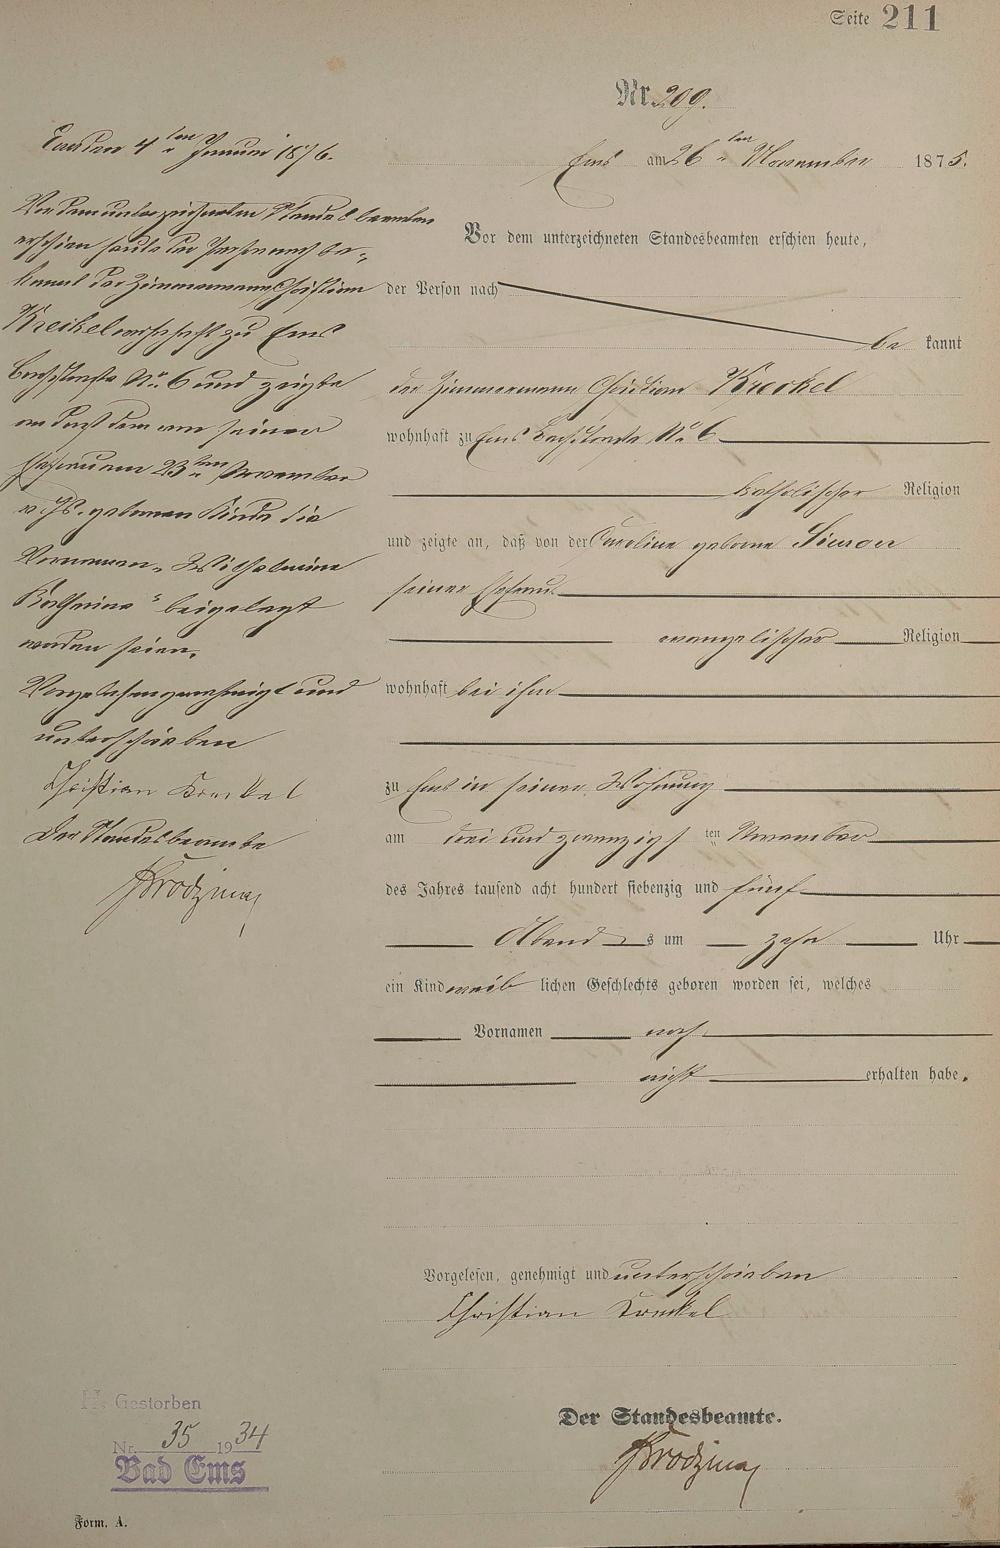 Seite 211
Nr. 299.
Ems am 26ten November 1875.
Vor dem unterzeichneten Standesbeamten erschien heute,
der Person nach
be kannt
der Zimmermann Christian Kreckel
wohnhaft zu Ems Bachstraße No 6
katholischer Religion
und zeigte an, daß von der Caroline geborne
seiner Ehefrau
evangelischer Religion
wohnhaft bei ihm
zu Ems in seiner Wohnung
am drei und zwanzigs ten November
des Jahres tausend acht hundert siebenzig und fünf
Abend s um zehn Uhr
ein Kind weib lichen Geschlechts geboren worden sei, welches
Vornamen noch
nicht erhalten habe.
Vorgelesen, genehmigt und unterschrieben
Christian Kreckel
Der Standesbeamte.
Ems den 4ten Januar 1876.
Vor dem unterzeichneten Standesbeamten
erschien heute der Person nach be-
kannt der Zimmermann Christian
Kreckel wohnhaft zu Ems
Bachstraße No 6 und zeigte
an daß dem von seiner
Ehefrau am 23ten November
v. Js. gebornen Kinde die
Vornamen „Wilhelmine
Kathrina“ beigelegt
worden seien.
Vorgelesen genehmigt und
unterschrieben
Christian Kreckel
Der Standesbeamte
H. Gestorben
Nr. 35 1934
Bad Ems
Form. A.